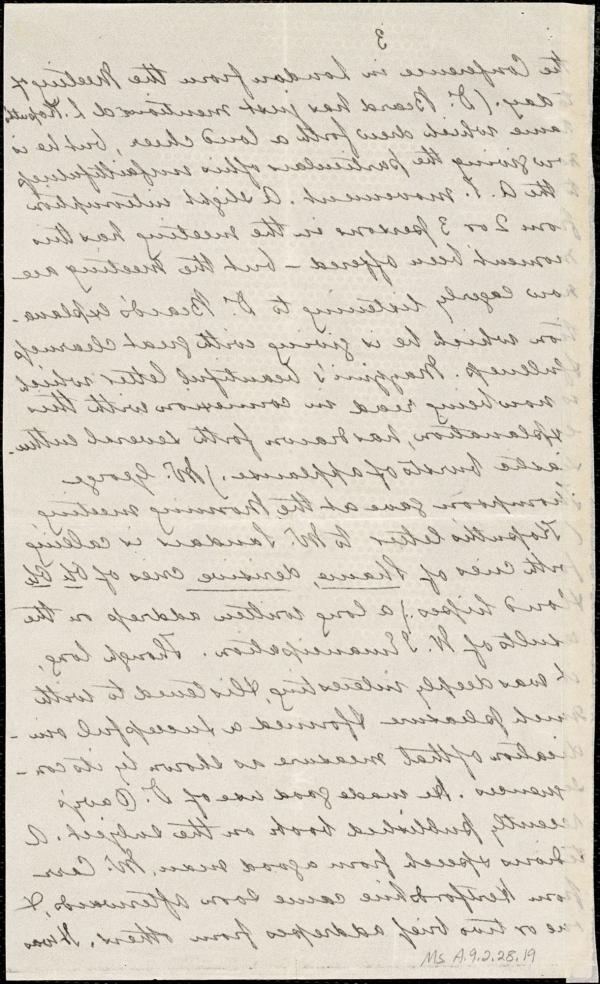 3
the Conference in London from the Meeting of
day. (Dr. Beard has just mentioned L. Kossuth's
name which drew forth a loud cheer, but he is
now giving the particulars of his unfaithfulness
the A. S. movement. A slight interruption
from 2 or 3 persons in the meeting has this
moment been offered – but the Meeting are
now eagerly listening to Dr. Beard's explana-
tion which he is giving with great clearness
fullness. Mazzini's beautiful letter which
now being read in connexion with this
explanation, has drawn forth several enthu-
siastic bursts of applause.) Mr. George
Thompson gave at the Morning meeting
Kossuth's letter to Mr. Sandars is calling
forth cries of shame, derisive cries of Oh Oh
loud hisses.) a long written address on the
results of W. I. Emancipation. Though long,
it was deeply interesting, & listened to with
much pleasure & formed a successful vin-
dication of that measure as shown by its con-
sequences. He made good use of Dr. Davy's
recently published book on the subject. A
speech from a good man, Mr. Carr
from Hertfordshire came soon afterwards, &
one or two brief addresses from others. It was
Ms A.9.2.28.19